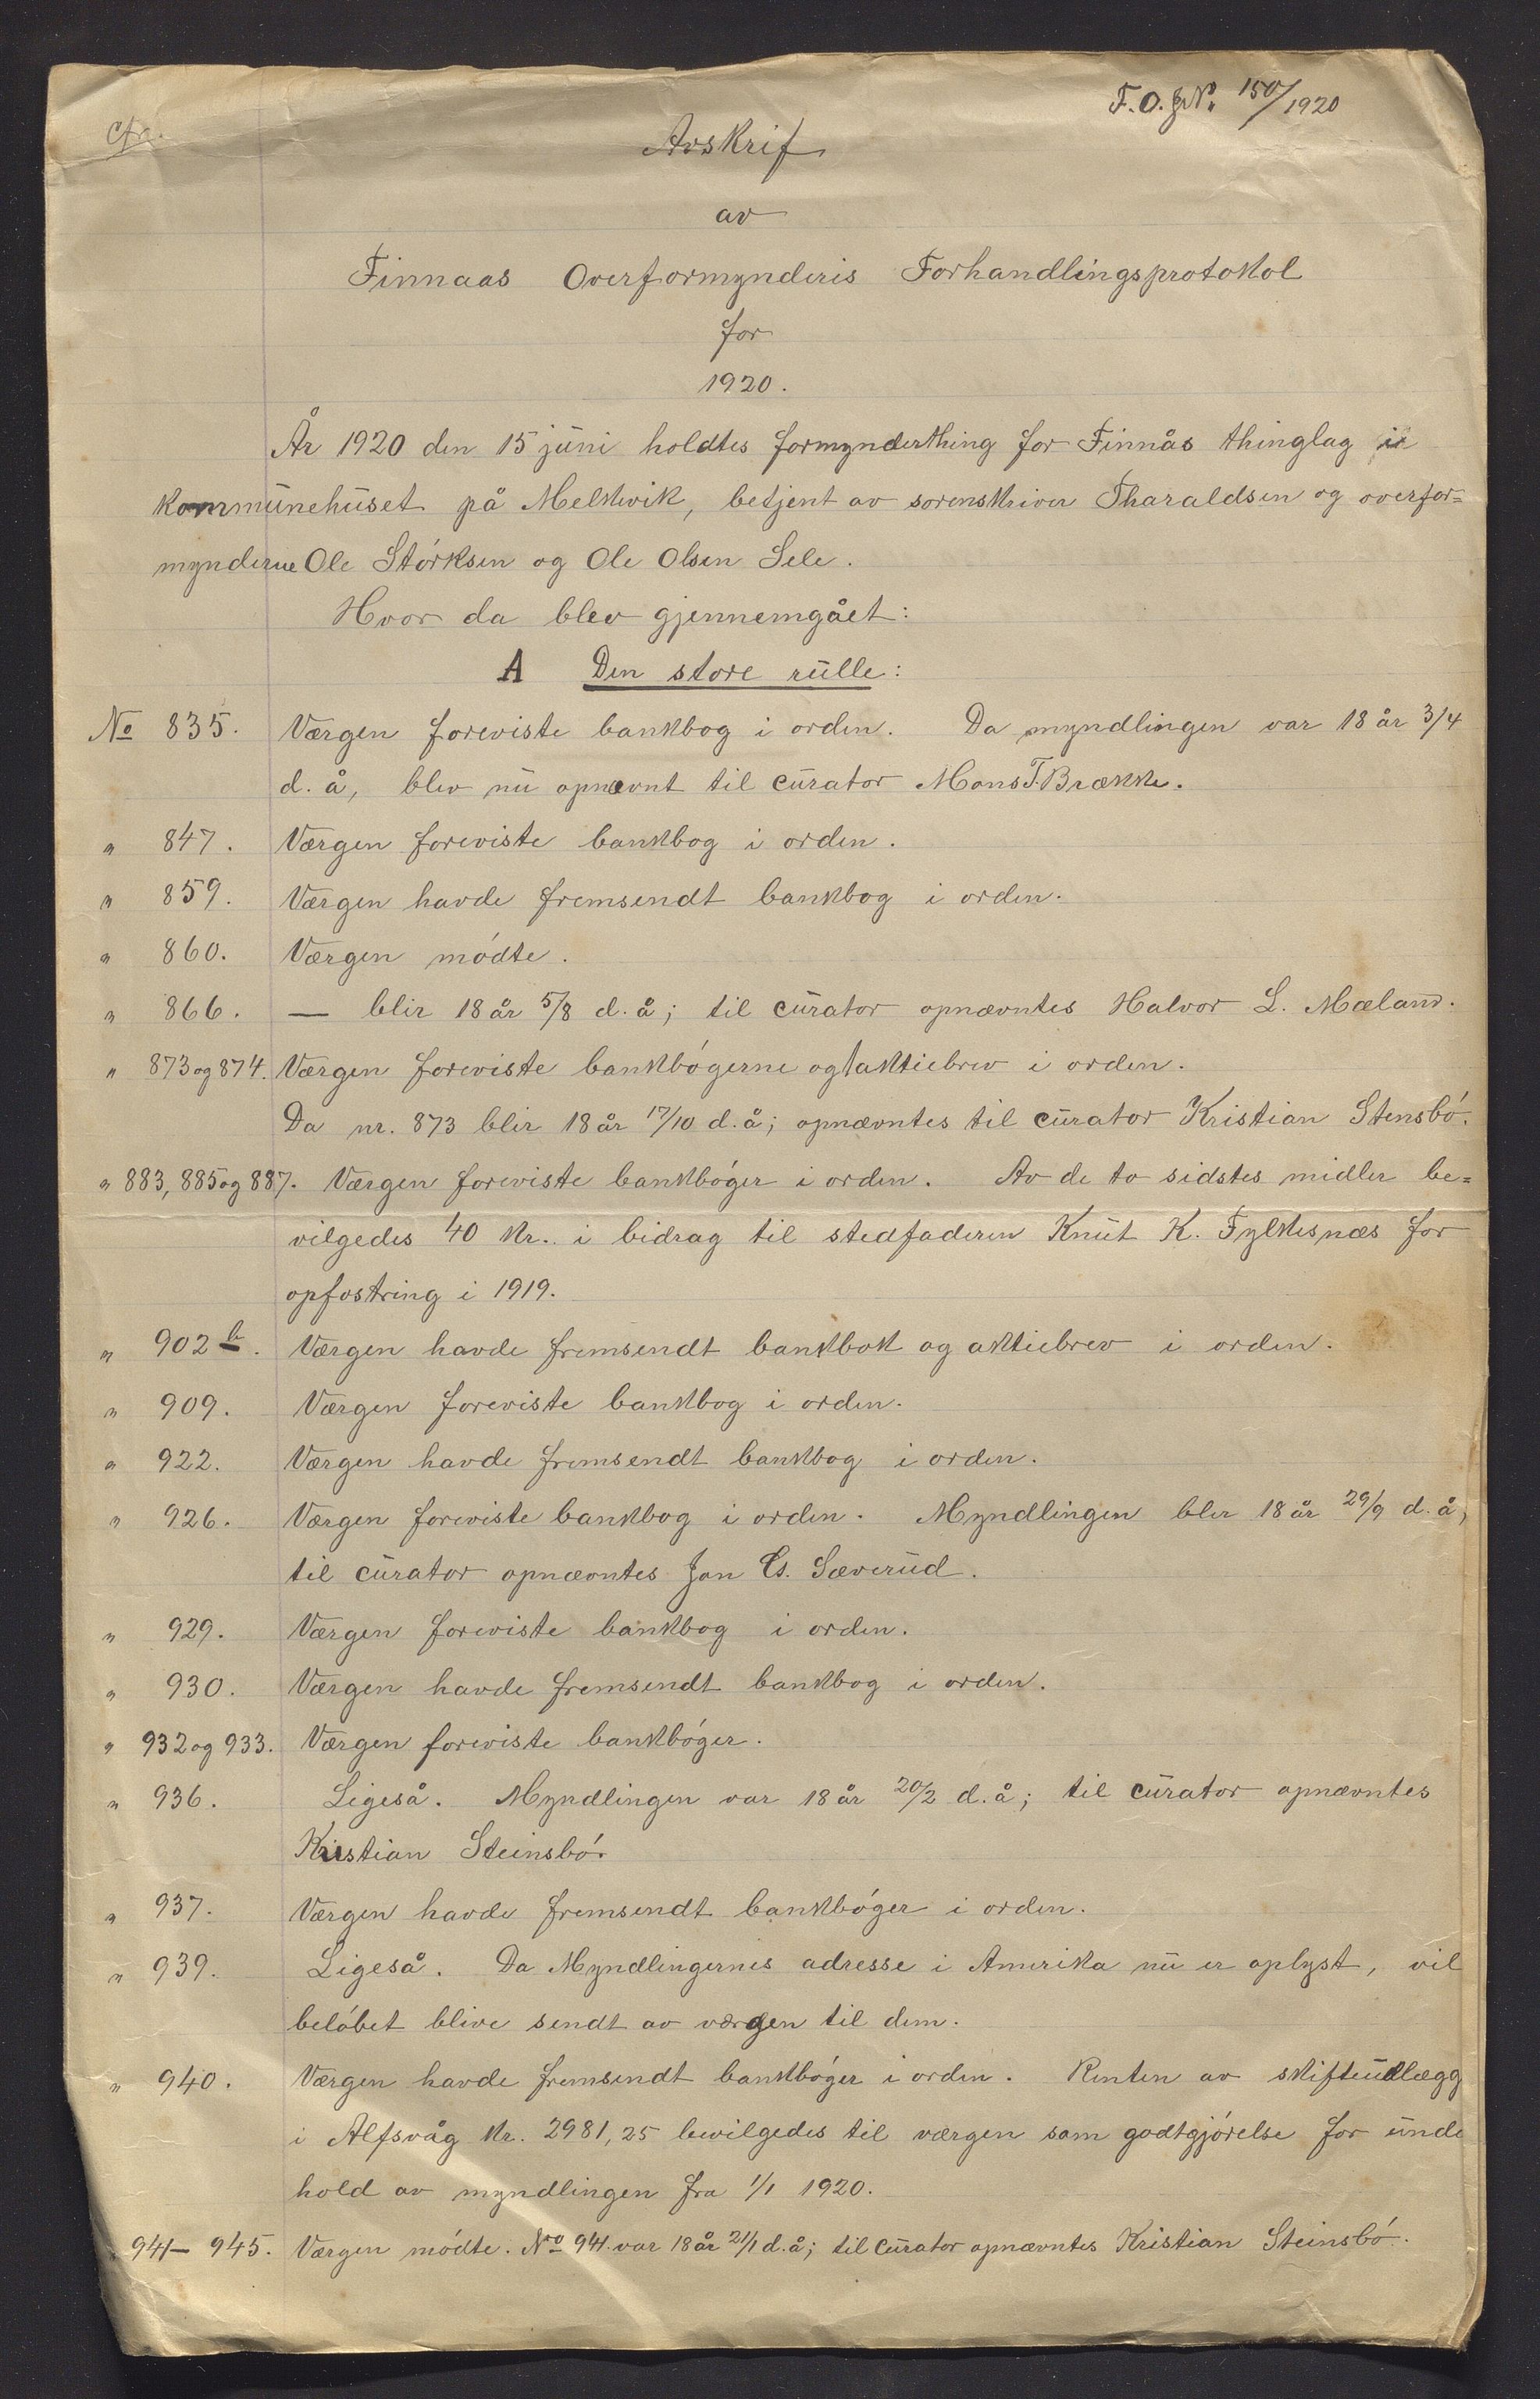 F.O.J.No. 150/1920
Avskrif
av
Finnaas Overformynderis Forhandlingsprotokol
for
1920.
År 1920 den 15 juni holdtes formynderthing for Finnås thinglag i
kommunehuset på Melkevik, betjent av sorenskriver Tharaldsen og overfor=
mynderne Ole Størksen og Ole Olsen Sele.
Hvor da blev gjennemgået:
A Den store rulle:
No 835. Værgen foreviste bankbog i orden. Da myndlingen var 18 år 3/4
d. å, blev nu opnævnt til curator Mons T. Brække.
" 847. Værgen foreviste bankbog i orden.
" 859. Værgen havde fremsendt bankbog i orden.
" 860. Værgen mødte.
" 866. — blir 18 år 5/8 d. å; til curator opnævntes Halvor L. Mæland.
" 873 og 874. Værgen foreviste bankbøgerne og 1 aktiebrev i orden.
Da nr. 873 blir 18 år 17/10 d. å; opnævntes til curator Kristian Stensbø.
" 883, 885 og 887. Værgen foreviste bankbøger i orden. Av de to sidstes midler be=
vilgedes 40 kr. i bidrag til stedfaderen Knut K. Fylkesnæs for
opfostring i 1919.
" 902 b. Værgen havde fremsendt bankbok og aktiebrev i orden.
" 909. Værgen foreviste bankbog i orden.
" 922. Værgen havde fremsendt bankbog i orden.
" 926. Værgen foreviste bankbog i orden. Myndlingen blir 18 år 29/9 d. å,
til curator opnævntes Jan Sæverud.
" 929. Værgen foreviste bankbog i orden.
" 930. Værgen havde fremsendt bankbog i orden.
" 932 og 933. Værgen foreviste bankbøger.
" 936. Ligeså. Myndlingen var 18 år 20/2 d. å; til curator opnævntes
Kristian Steinsbø.
" 937. Værgen havde fremsendt bankbøger i orden.
" 939. Ligeså. Da Myndlingernes adresse i Amerika nu er oplyst, vil
beløbet blive sendt av værgen til dem.
" 940. Værgen havde fremsendt bankbøger i orden. Renten av skifteudlægg
i Alfsvåg kr. 2981,25 bevilgedes til værgen som godtgjørelse for unde
hold av myndlingen fra 1/1 1920.
941– 945. Værgen mødte. No 941. var 18 år 21/1 d. å; til curator opnævntes Kristian Steinsbø.